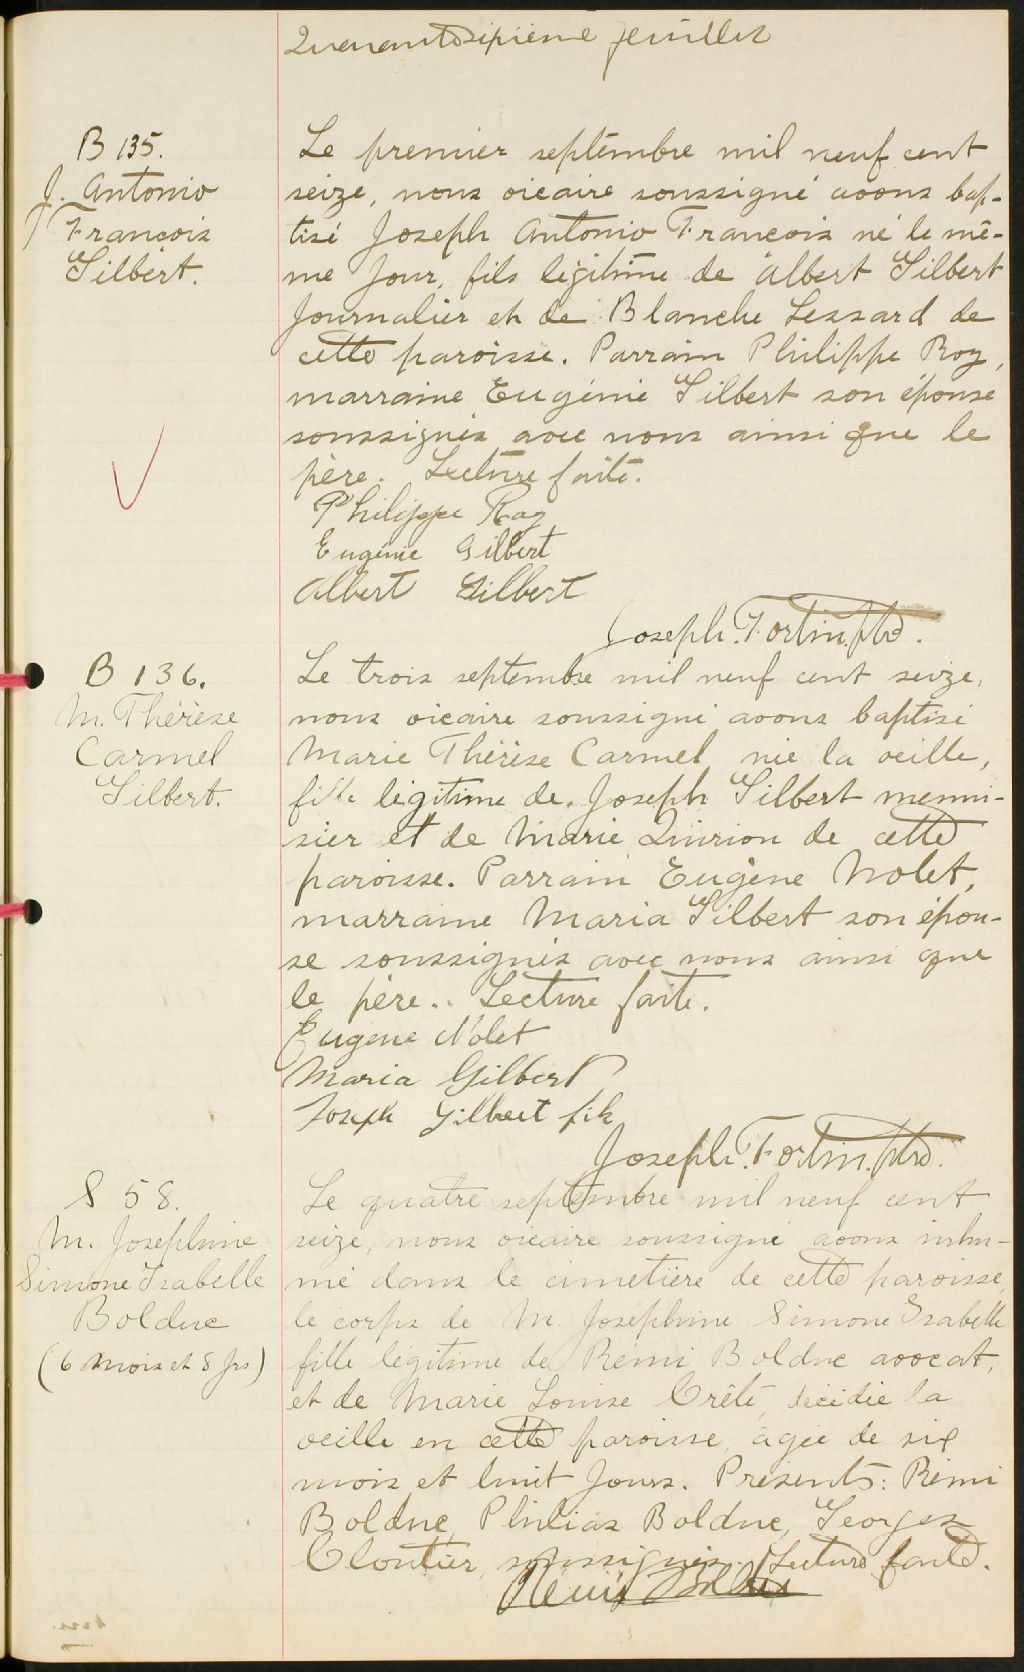 Quarantesixième feuillet
B 135.
J. Antonio
François
Gilbert.
Le premier septembre mil neuf cent
seize, nous vicaire soussigné avons bap-
tisé Joseph Antonio François né le mê-
me jour, fils légitime de Albert Gilbert
journalier et de Blanche Lessard de
cette paroisse. Parrain Philippe Roy,
marraine Eugénie Gilbert son épouse
soussignés avec nous ainsi que le
père. Lecture faite.
Philippe Roy
Eugénie Gilbert
Albert Gilbert
Joseph. Fortin. ptre.
B 136.
M. Thérèse
Carmel
Gilbert.
Le trois septembre mil neuf cent seize,
nous vicaire soussigné avons baptisé
Marie Thérèse Carmel, née la veille,
fille légitime de Joseph Gilbert menui-
sier et de Marie Quirion de cette
paroisse. Parrain Eugène Nolet,
marraine Maria Gilbert son épou-
se soussignés avec nous ainsi que
le père.. Lecture faite.
Eugene Nolet
Maria Gilbert
Joseph Gilbert fils
Joseph. Fortin. ptre.
S 58.
M. Josephine
Simone Isabelle
Bolduc
(6 mois et 8 jrs)
Le quatre septembre mil neuf cent
seize, nous vicaire soussigné avons inhu-
mé dans le cimetière de cette paroisse,
le corps de M. Joséphine Simone Isabelle
fille légitime de Rémi Bolduc avocat,
et de Marie Louise Crêté, décédée la
veille en cette paroisse, agée de six
mois et huit jours. Présents: Rémi
Bolduc, Philias Bolduc, Georges
Cloutier, soussignés. Lecture faite.
Rémi Bolduc